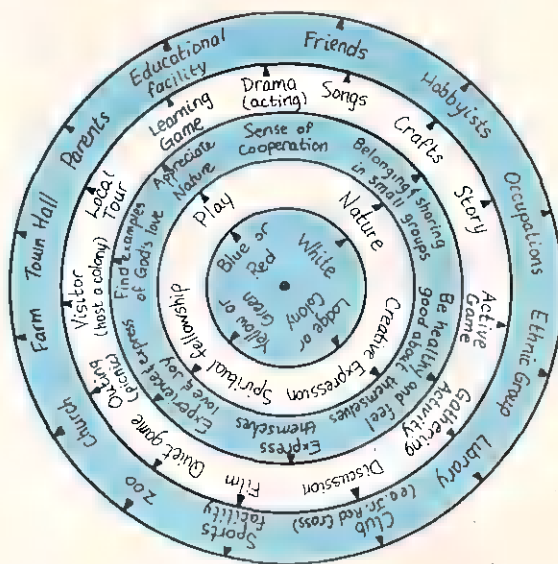 Friends
Hobbyists
Occupations
Ethnic Group
Library
Club
(eg. Jr. Red Cross)
Sports
facility
Zoo
Church
Farm
Town Hall
Parents
Educational
facility
Drama
(acting)
Songs
Crafts
Story
Active
Game
Gathering
Activity
Discussion
Film
Quiet game
Outing
(picnic)
Visitor
(host a colony)
Local
Tour
Learning
Game
Sense of
Cooperation
Belonging & sharing
in small groups
Be healthy and feel
good about themselves
Express
themselves
Experience & express
love & joy
Find examples
of God's love
Appreciate
Nature
Play
Nature
Creative Expression
Spiritual fellowship
White
Lodge or
Colony
Yellow or
Green
Blue or
Red